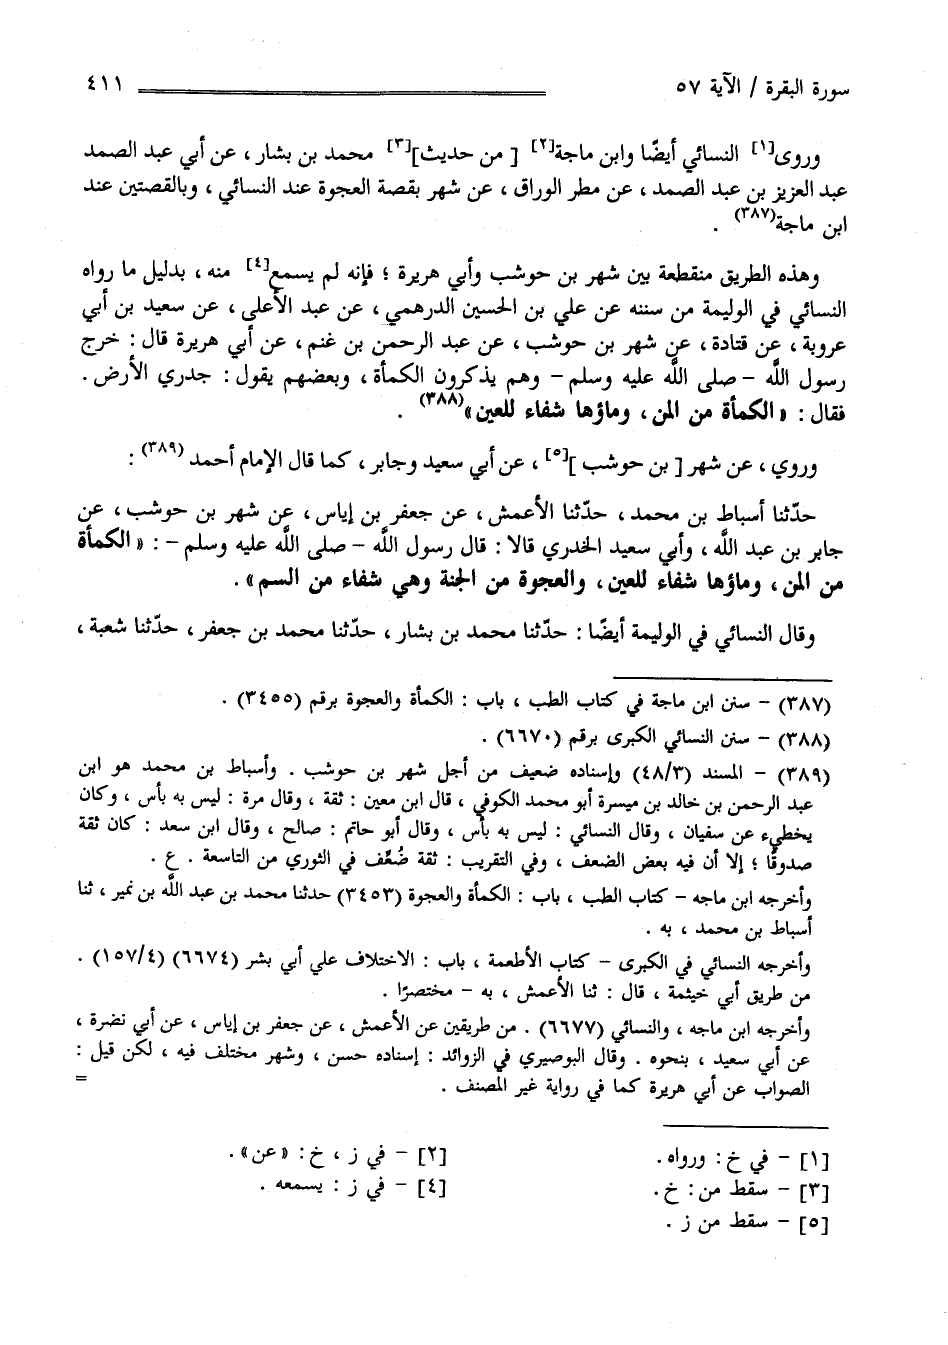 سورة البقرة / الآية ٥٧
٤١١
وروى[١] النسائي أيضًا وابن ماجة[٢] [ من حديث][٣] محمد بن بشار ، عن أبي عبد الصمد
عبد العزيز بن عبد الصمد ، عن مطر الوراق ، عن شهر بقصة العجوة عند النسائي ، وبالقصتين عند
ابن ماجة(٣٨٧) .
وهذه الطريق منقطعة بين شهر بن حوشب وأبي هريرة ؛ فإنه لم يسمع[٤] منه ، بدليل ما رواه
النسائي في الوليمة من سننه عن علي بن الحسين الدرهمي ، عن عبد الأعلى ، عن سعيد بن أبي
عروبة ، عن قتادة ، عن شهر بن حوشب ، عن عبد الرحمن بن غنم ، عن أبي هريرة قال : خرج
رسول اللَّه – صلى اللَّه عليه وسلم – وهم يذكرون الكمأة ، وبعضهم يقول : جدري الأرض .
فقال : « الكمأة من المن ، وماؤها شفاء للعين »(٣٨٨) .
وروي ، عن شهر [ بن حوشب ][٥] ، عن أبي سعيد وجابر ، كما قال الإمام أحمد (٣٨٩) :
حدّثنا أسباط بن محمد ، حدّثنا الأعمش ، عن جعفر بن إياس ، عن شهر بن حوشب ، عن
جابر بن عبد اللَّه ، وأبي سعيد الخدري قالا : قال رسول اللَّه – صلى اللَّه عليه وسلم – : « الكمأة
من المن ، وماؤها شفاء للعين ، والعجوة من الجنة وهي شفاء من السم » .
وقال النسائي في الوليمة أيضًا : حدّثنا محمد بن بشار ، حدّثنا محمد بن جعفر ، حدّثنا شعبة ،
(٣٨٧) – سنن ابن ماجة في كتاب الطب ، باب : الكمأة والعجوة برقم (٣٤٥٥) .
(٣٨٨) – سنن النسائي الكبرى برقم (٦٦٧٠) .
(٣٨٩) – المسند (٤٨/٣) وإسناده ضعيف من أجل شهر بن حوشب . وأسباط بن محمد هو ابن
عبد الرحمن بن خالد بن ميسرة أبو محمد الكوفي ، قال ابن معين : ثقة ، وقال مرة : ليس به بأس ، وكان
يخطيء عن سفيان ، وقال النسائي : ليس به بأس ، وقال أبو حاتم : صالح ، وقال ابن سعد : كان ثقة
صدوقًا ؛ إلا أن فيه بعض الضعف ، وفي التقريب : ثقة ضُعِّف في الثوري من التاسعة . ع .
وأخرجه ابن ماجه – كتاب الطب ، باب : الكمأة والعجوة (٣٤٥٣) حدثنا محمد بن عبد اللَّه بن نمير ، ثنا
أسباط بن محمد ، به .
وأخرجه النسائي في الكبرى – كتاب الأطعمة ، باب : الاختلاف علي أبي بشر (٦٦٧٤) (١٥٧/٤) .
من طريق أبي خيثمة ، قال : ثنا الأعمش ، به – مختصرًا .
وأخرجه ابن ماجه ، والنسائي (٦٦٧٧) . من طريقين عن الأعمش ، عن جعفر بن إياس ، عن أبي نضرة ،
عن أبي سعيد ، بنحوه . وقال البوصيري في الزوائد : إسناده حسن ، وشهر مختلف فيه ، لكن قيل :
الصواب عن أبي هريرة كما في رواية غير المصنف .
=
[١] – في خ : ورواه .
[٢] – في ز ، خ : « عن » .
[٣] – سقط من : خ .
[٤] – في ز : يسمعه .
[٥] – سقط من ز .